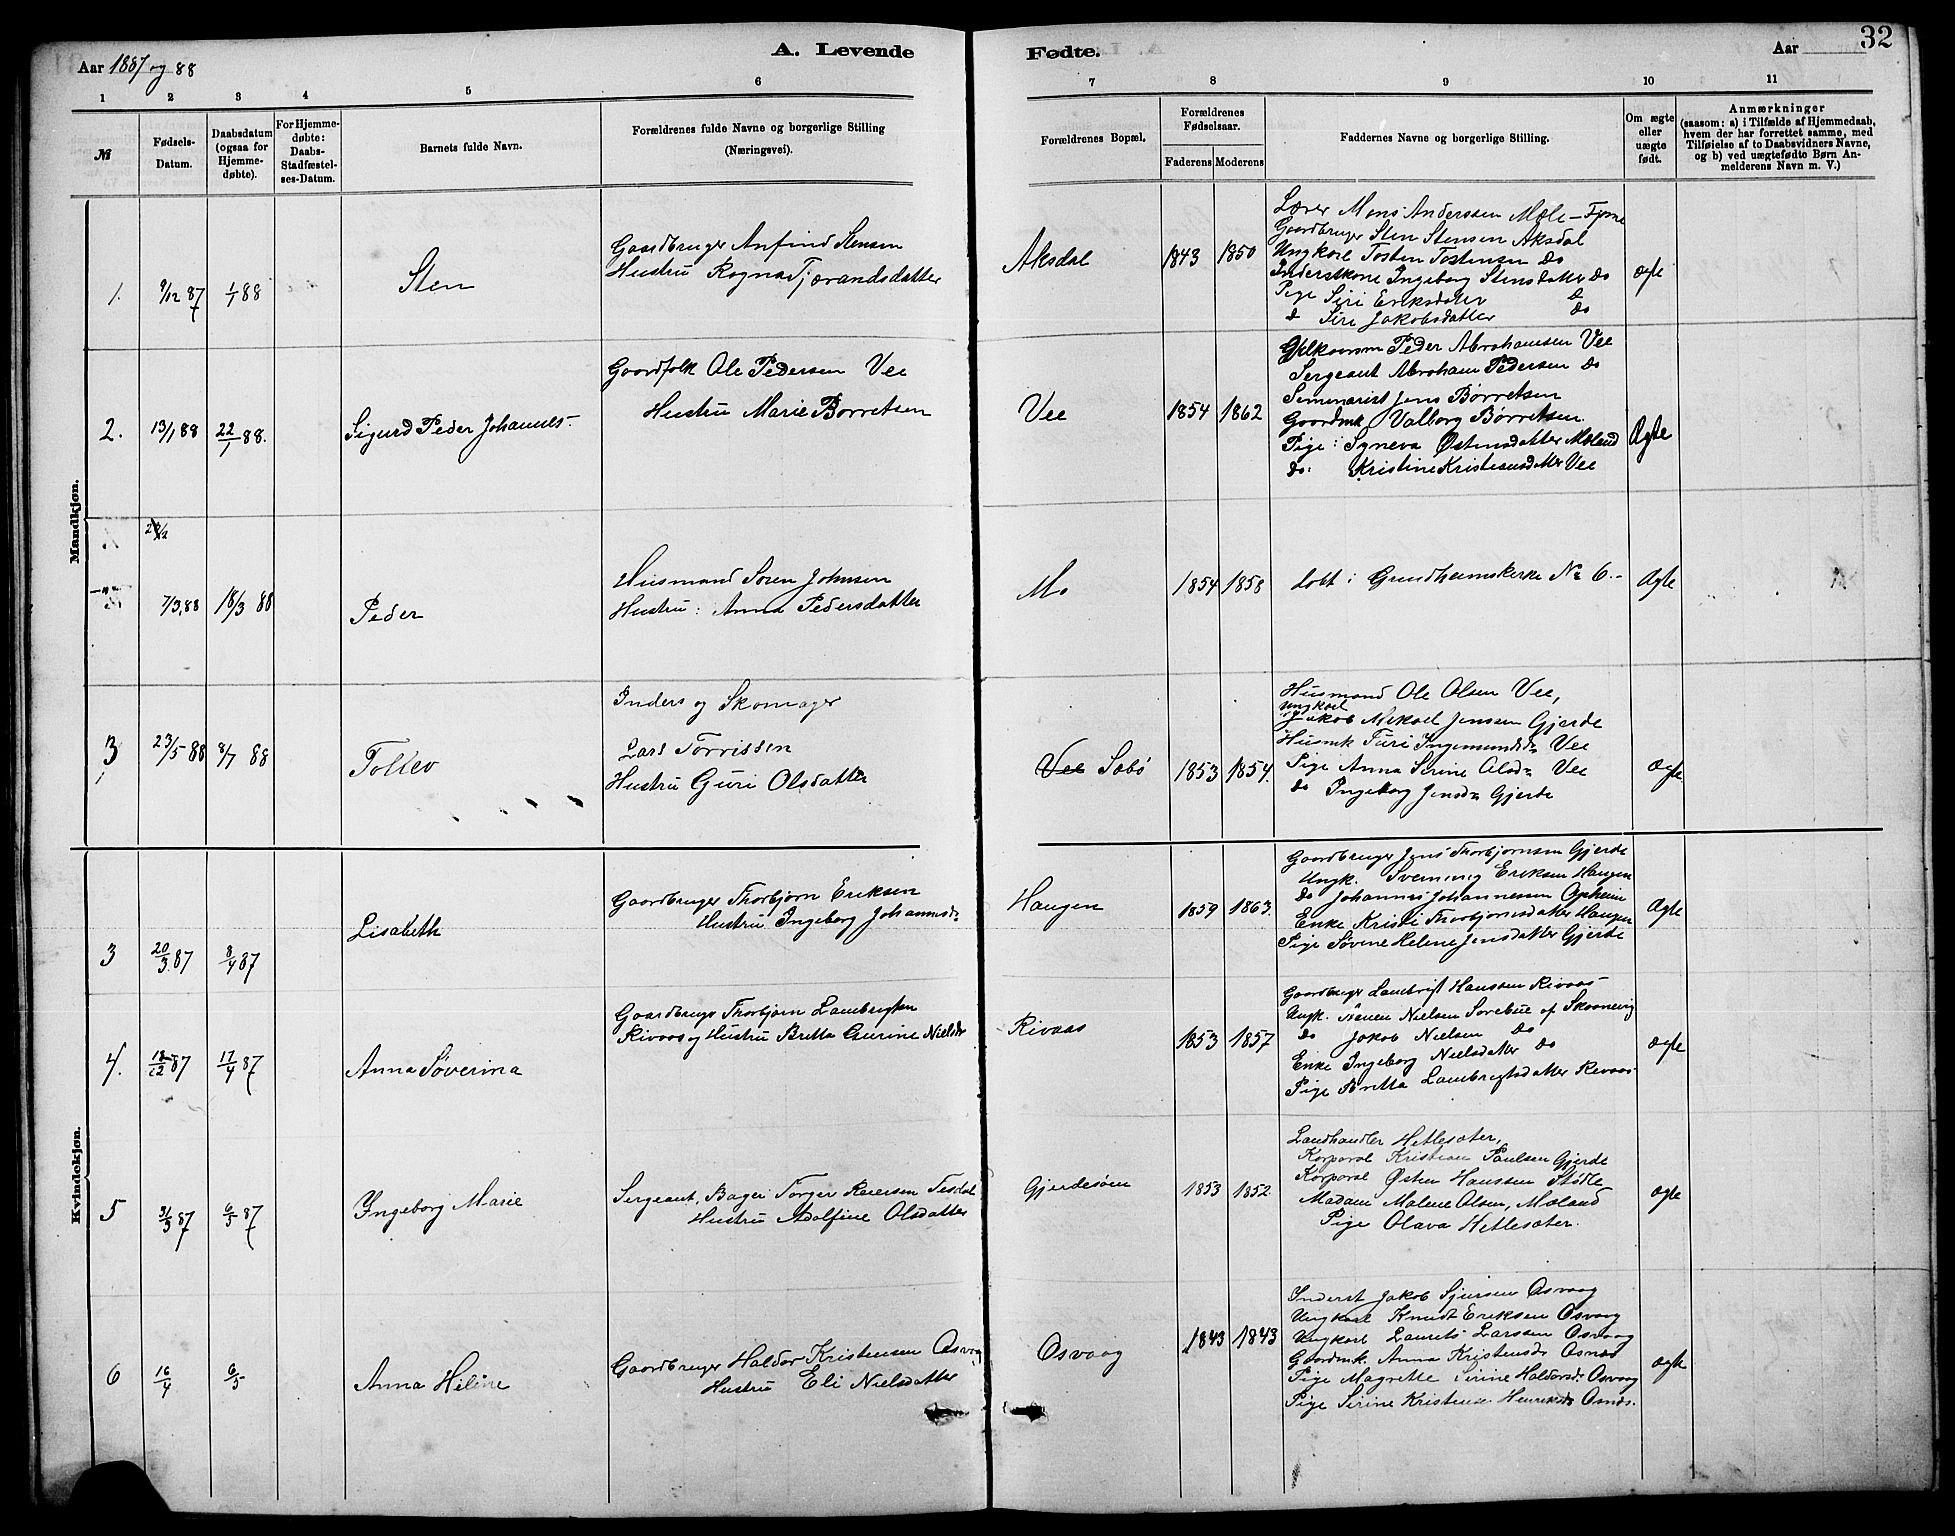 Aar 1887 og 88
A. Levende Fødte.
Aar
32
1 2 3 4 5 6 7 8 9 10 11
№
Fødsels-Datum.
Daabsdatum (ogsaa for Hjemme-døbte).
For Hjemme-døbte: Daabs-Stadfæstel-ses-Datum.
Barnets fulde Navn.
Forældrenes fulde Navne og borgerlige Stilling (Næringsvei).
Forældrenes Bopæl,
Forældrenes Fødselsaar.
Faderens Moderens
Faddernes Navne og borgerlige Stilling.
Om ægte eller uægte født.
Anmærkninger
(saasom: a) i Tilfælde af Hjemmedaab, hvem der har forrettet samme, med Tilføielse af to Daabsvidners Navne, og b) ved uægtefødte Børn An-melderens Navn m. V.)
Mandkjøn.
1. 9/12 87 1/1 88 Sten
Gaardbruger Anfind Stensen
Hustru Ragna Tjærandsdatter
Aksdal 1843 1850
Lærer Mons Anderssen Mæle - 
Gaardbruger Sten Stensen Aksdal
Ungkarl Tosten Tostensen do
Inderstkone Ingeborg Stensdatter do
Pige Siri Eriksdatter do
d Siri Jakobsdatter do
ægte
2. 13/1 88 22/1 88. Sigurd Peder Johannes -
Gaardfolk Ole Pedersen Vee
Hustru Marie Børretsen
Vee 1854 1862
Peder Abrahamsen Vee
Sergeant Abraham Pedersen do
Seminarist Jens Børretsen
Gaardmk Valborg Børretsen
Pige: Syneva Østensdatter Mæland
do: Kristine Kristensdatter Vee
Ægte
7/3 88 18/3 88 Peder
Husmand Søren Johnsen
Hustru: Anna Pedersdatter
Mo 1854 1858
døbt i Grindheimskirke No 6.-
Ægte
3 23/5 88 8/7 88 Tollev
Inders og Skomager
Lars Torrissen
Hustru Guri Olsdatter
Vee Sæbø 1853 1854.
Husmand Ole Olsen Vee,
Ungkarl
Jakob Mikael Jensen Gjerde
Husmk Turi Ingemundsd. Vee
Pige Anna Serine Olsd. Vee
do Ingeborg Jensd. Gjerde
Ægte
Kvindekjøn.
3 20/3 87 8/4 87 Lisabeth
Gaardbruger Thorbjørn Eriksen
Hustru Ingeborg Johannesd.
Haugen 1859 1863.
Gaardbruger Jens Thorbjørnsen Gjerde
Ungk. Sverning Eriksen Haugen
do Johannes Johannessen Opheim
Enke Kristi Thorbjørnsdatter Haugen
Pige Søvine Helene Jensdatter Gjerde
Ægte
4. 18/12 87 17/4 87 Anna Søverina
Gaardbruger Thorbjørn Lambregtsen
Rivaas og Hustru Britta Gurine Nielsdr
Rivaas 1853 1857
Gaardbruger Lambrigt Hanssen Rivaas
Ungk. Nielsen Sørebue af Skaanevig
do Jakob Nielsen do
Enke Ingeborg Nielsdatter do
Pige Britta Lambregtsdatter Rivaas
ægte
5 31/3 87 6/5 87 Ingeborg Marie
Sergeant, Bager Torger Reiersen Tesdal
Hustru Adolfine Olsdatter
Gjerdesøen 1853 1852
Landhandler Hetlesæter,
Korporal Kristian Paulsen Gjerde
Korporal Østen Hanssen Stødle
Madam Malene Olsen, Mæland
Pige Olava Hetlesæter.
ægte
6 16/4 6/5 Anna Heline
Gaardbruger Haldor Kristensen Osvaag
Hustru Eli Nielsdatter
Osvaag 1843 1843
Inderst Jakob Sjursen Osvaag
Ungkarl Knudt Eriksen Osvaag
Ungkarl Laurits Larssen Osvaag
Gaardmk. Anna Kristensdr Osnæs
Pige Magrette Serine Haldorsdr Osvaag
Pige Serine Kristense Henriksdr Osnæs.
ægte